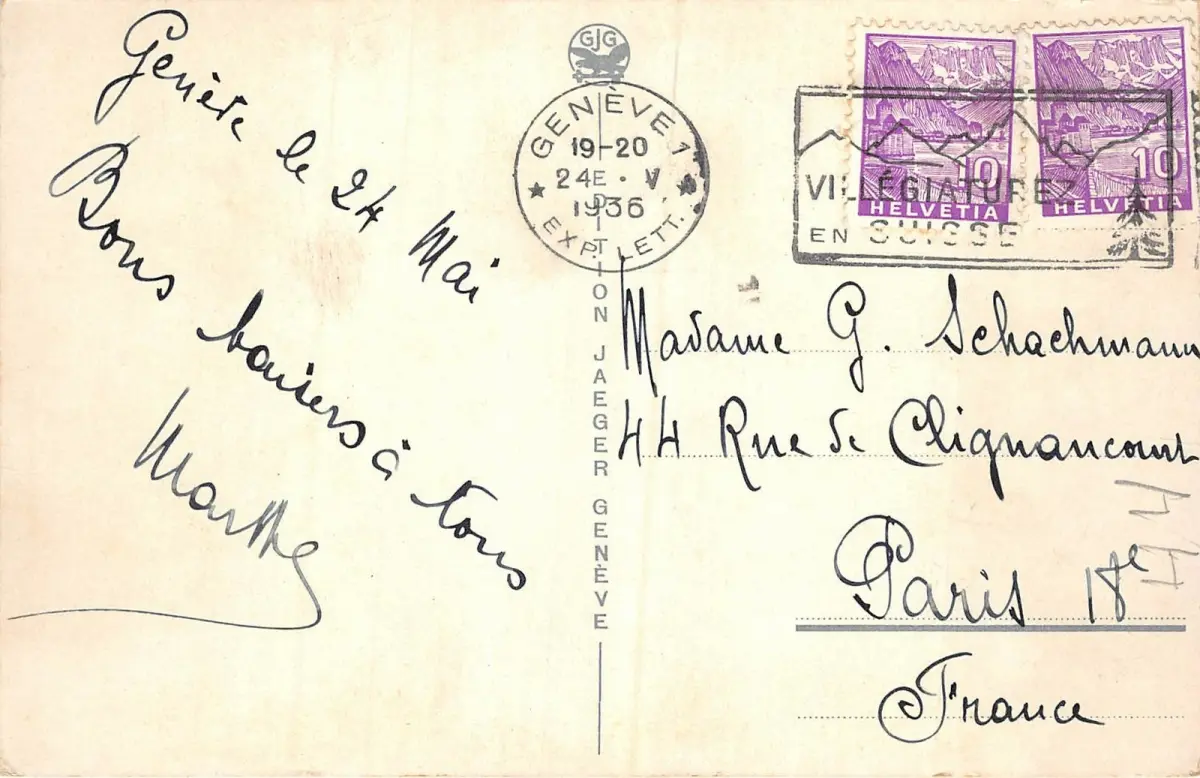 Genève le 24 Mai
Bons baisers à tous
Marthe
GJG
GENÈVE 1
19-20
24 · V
1936
EXP. LETT.
EDITION JAEGER GENÈVE
VILLÉGIATUREZ
EN SUISSE
10
HELVETIA
10
HELVETIA
Madame G. Schachmann
44 Rue de Clignancourt
Paris 18e
France